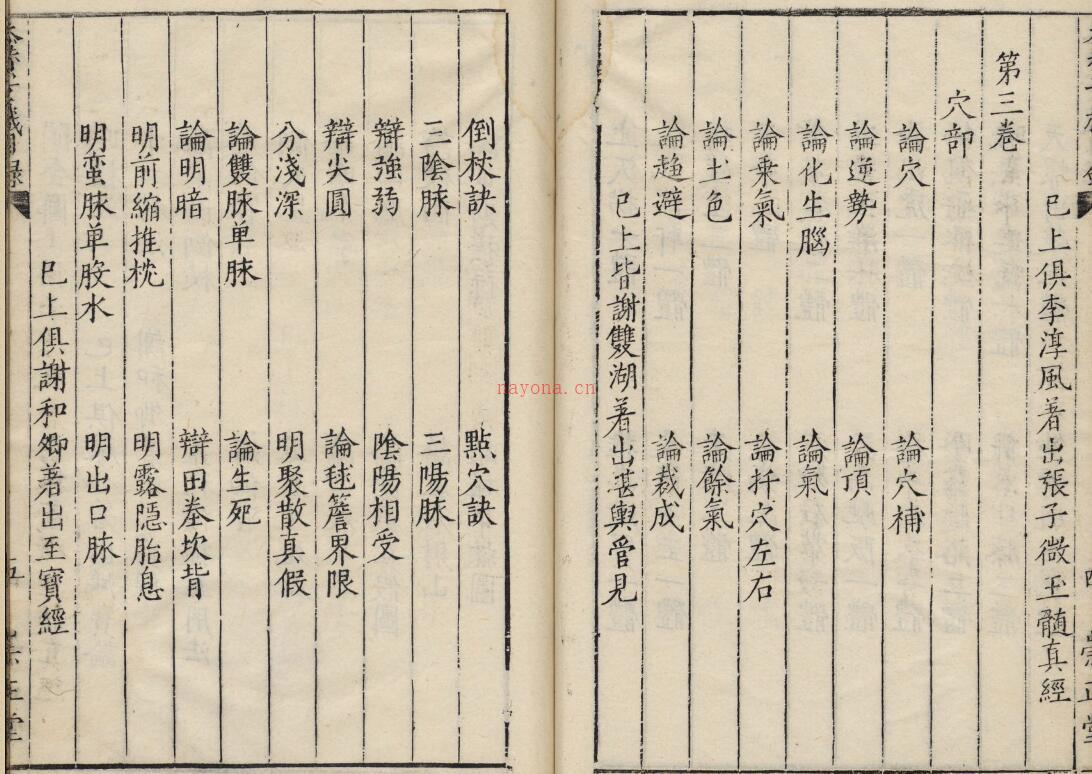 已上俱李淳風著出張子微玉髓真經
第三卷
穴部
論穴 論穴補
論逆勢 論頂
論化生腦 論氣
論乘氣 論扦穴左右
論土色 論餘氣
論趨避 論裁成
已上皆謝雙湖著出堪輿管見
倒杖訣 點穴訣
三陰脉 三陽脉
辯強弱 陰陽相受
辯尖圓 論毬簷界限
分淺深 明聚散真假
論雙脉单脉 論生死
論明暗 辯田塍坎背
明前縮推枕 明露隱胎息
明蛮脉单股水 明出口脉
已上俱謝和卿著出至寶經
五
崇正堂
nayona.cn